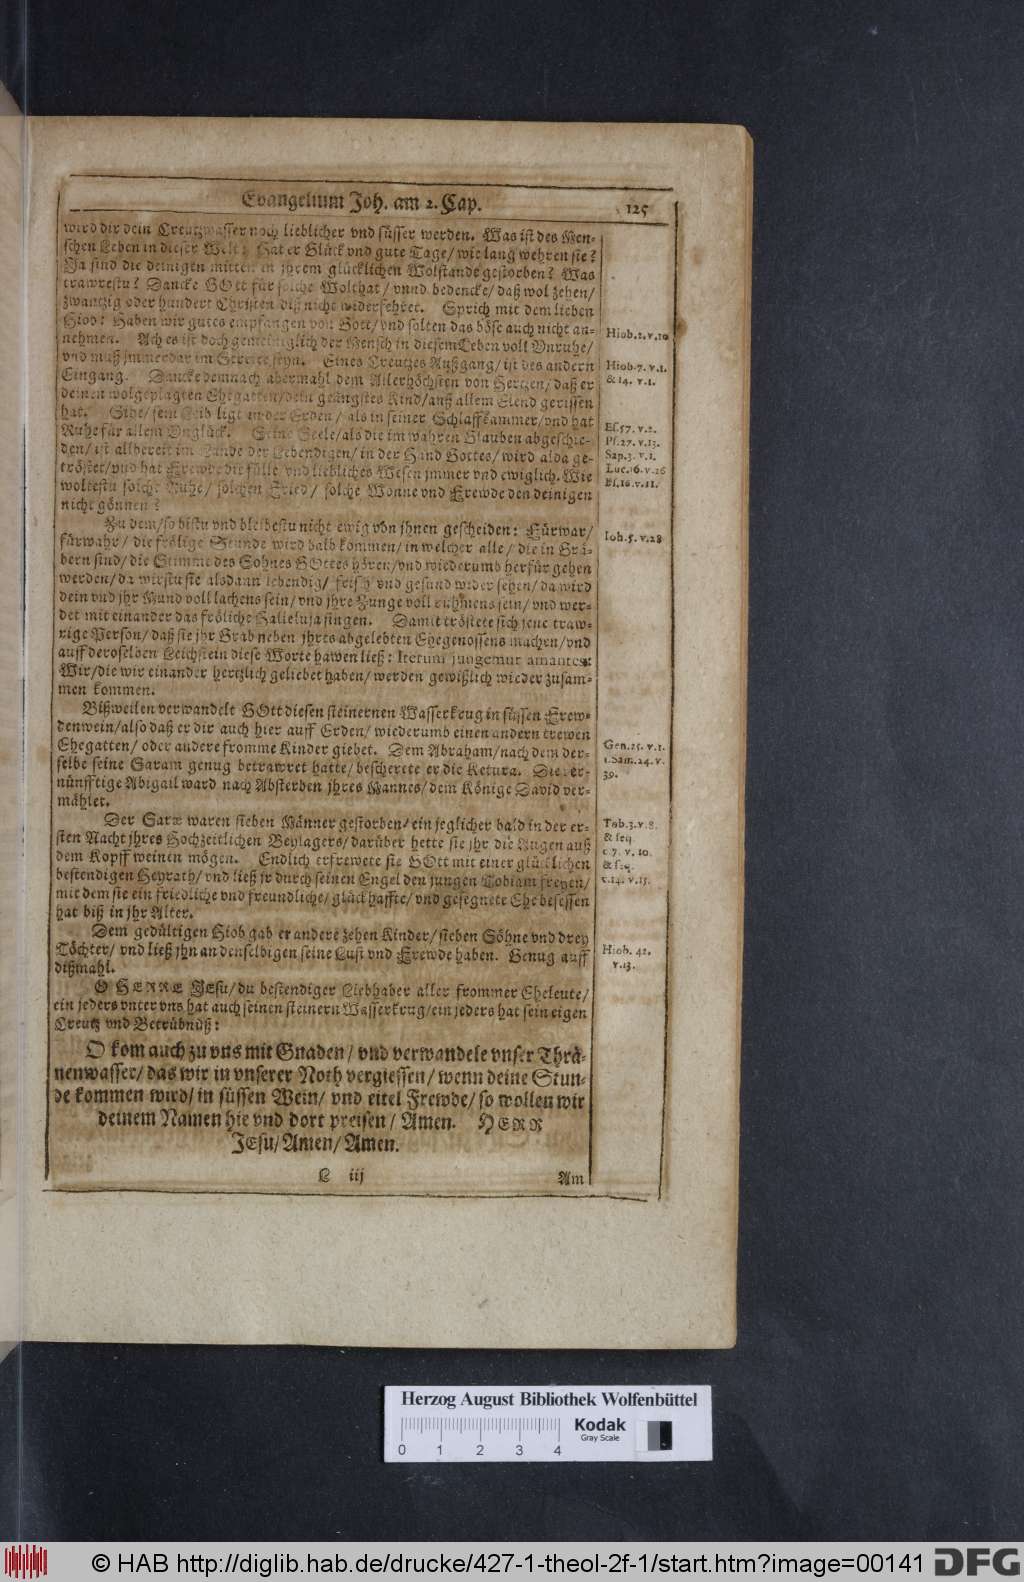 Evangelium Joh. am 2. Cap.
125
wird dir dein Creutzwasser noch lieblicher vnd süsser werden. Was ist des Men-
schen Leben in dieser Welt? Hat er Glück vnd gute Tage/ wie lang wehren sie?
Ja sind die deinigen mitten in jhrem glücklichen Wolstande gestorben? Was
trawrestu? Dancke GOtt für solche Wolthat/ vnnd bedencke/ daß wol zehen/
zwantzig oder hundert Christen diß nicht widerfehret. Sprich mit dem lieben
Hiob: Haben wir gutes empfangen von Gott/ vnd solten das böse auch nicht an-
nehmen. Ach es ist doch gemeiniglich der Mensch in diesem Leben voll Vnruhe/
vnd muß jmmerdar im Streite seyn. Eines Creutzes Außgang/ ist des andern
Eingang. Dancke demnach abermahl dem Allerhöchsten von Hertzen/ daß er
deinen wolgeplagten Ehegatten/ dein geängstes Kind/ auß allem Elend gerissen
hat. Sihe/ sein Leib ligt in der Erden/ als in seiner Schlaffkammer/ vnd hat
Ruhe für allem Vnglück. Seine Seele/ als die im wahren Glauben abgeschie-
den/ ist allbereit im Lande der Lebendigen/ in der Hand Gottes/ wird alda ge-
tröstet/ vnd hat Frewde die fülle vnd liebliches Wesen jmmer vnd ewiglich. Wie
woltestu solche Ruhe/ solchen Fried/ solche Wonne vnd Frewde den deinigen
nicht gönnen?
Zu dem/ so bistu vnd bleibestu nicht ewig von jhnen gescheiden: Fürwar/
fürwahr/ die frölige Stunde wird bald kommen/ in welcher alle/ die in Grä-
bern sind/ die Stimme des Sohnes GOttes hören/ vnd wiederumb herfür gehen
werden/ da wirstu sie alsdann lebendig/ frisch vnd gesund wider sehen/ da wird
dein vnd jhr Mund voll lachens sein/ vnd jhre Zunge voll rühmens sein/ vnd wer-
det mit einander das fröliche Halleluja singen. Damit tröstete sich jene traw-
rige Person/ daß sie jhr Grab neben jhres abgelebten Ehegenossens machen/ vnd
auff deroselben Leichstein diese Worte hawen ließ: Iterum jungemur amantes:
Wir/ die wir einander hertzlich geliebet haben/ werden gewißlich wieder zusam-
men kommen.
Bißweilen verwandelt GOtt diesen steinernen Wasserkrug in süssen Frew-
denwein/ also daß er dir auch hier auff Erden/ wiederumb einen andern trewen
Ehegatten/ oder andere fromme Kinder giebet. Dem Abraham/ nach dem der-
selbe seine Saram genug betrawret hatte/ bescherete er die Ketura. Die ver-
nünfftige Abigail ward nach Absterben jhres Mannes/ dem Könige David ver-
mählet.
Der Saræ waren sieben Männer gestorben/ ein jeglicher bald in der er-
sten Nacht jhres Hochzeitlichen Beylagers/ darüber hette sie jhr die Augen auß
dem Kopff weinen mögen. Endlich erfrewete sie GOtt mit einer glücklichen
bestendigen Heyrath/ vnd ließ jr durch seinen Engel den jungen Tobiam freyen/
mit dem sie ein friedliche vnd freundliche/ glückhaffte/ vnd gesegnete Ehe besessen
hat biß in jhr Alter.
Dem gedültigen Hiob gab er andere zehen Kinder/ sieben Söhne vnd drey
Töchter/ vnd ließ jhn an denselbigen seine Lust vnd Frewde haben. Genug auff
dißmahl.
O HERRE JEsu/ du bestendiger Liebhaber aller frommer Eheleute/
ein jeders vnter vns hat auch seinen steinern Wasserkrug/ ein jeders hat sein eigen
Creutz vnd Betrübnüß:
O kom auch zu vns mit Gnaden/ vnd verwandele vnser Thrä-
nenwasser/ das wir in vnserer Noth vergiessen/ wenn deine Stun-
de kommen wird/ in süssen Wein/ vnd eitel Frewde/ so wollen wir
deinem Namen hie vnd dort preisen/ Amen. HERR
JEsu/ Amen/ Amen.
L iij
Am
Hiob. 2. v. 10
Hiob. 7. v. 1.
& 14. v. 1.
Es. 57. v. 2.
Ps. 27. v. 13.
Sap. 3. v. 1.
Luc. 16. v. 26
Ps. 16. v. 11.
Ioh. 5. v. 28
Gen. 25. v. 1.
1. Sam. 24. v.
39.
Tob. 3. v. 8.
& seq.
c. 7. v. 10.
& seq.
c. 14. v. 15.
Hiob. 42.
v. 13.
Herzog August Bibliothek Wolfenbüttel
Kodak
Gray Scale
0 1 2 3 4
© HAB http://diglib.hab.de/drucke/427-1-theol-2f-1/start.htm?image=00141
DFG